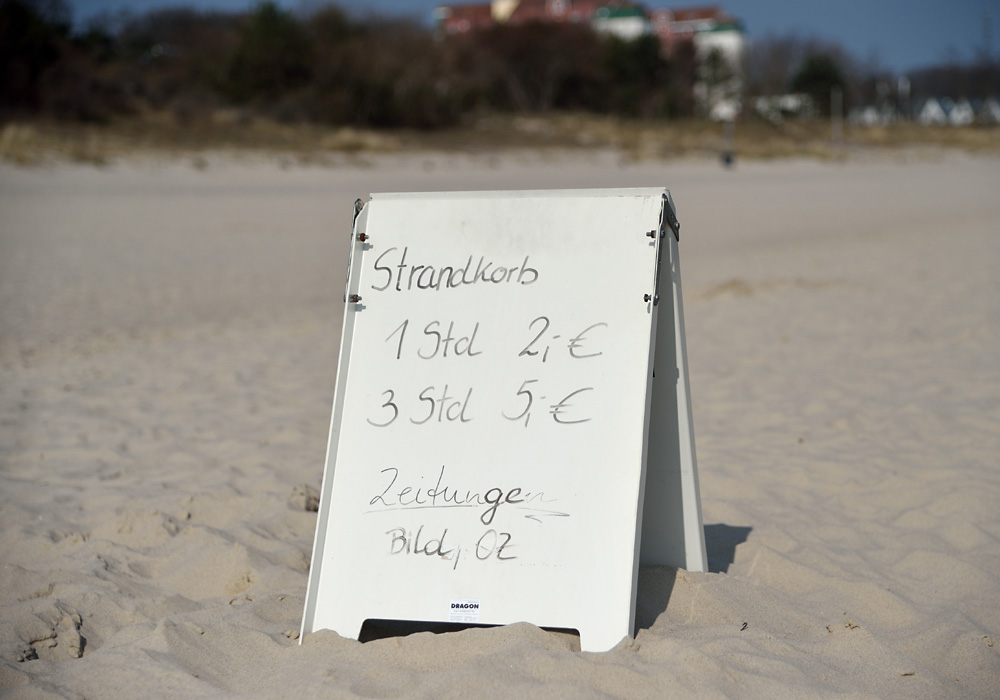 Strandkorb
1 Std 2,- €
3 Std 5,- €
Zeitungen
Bild, OZ
DRAGON